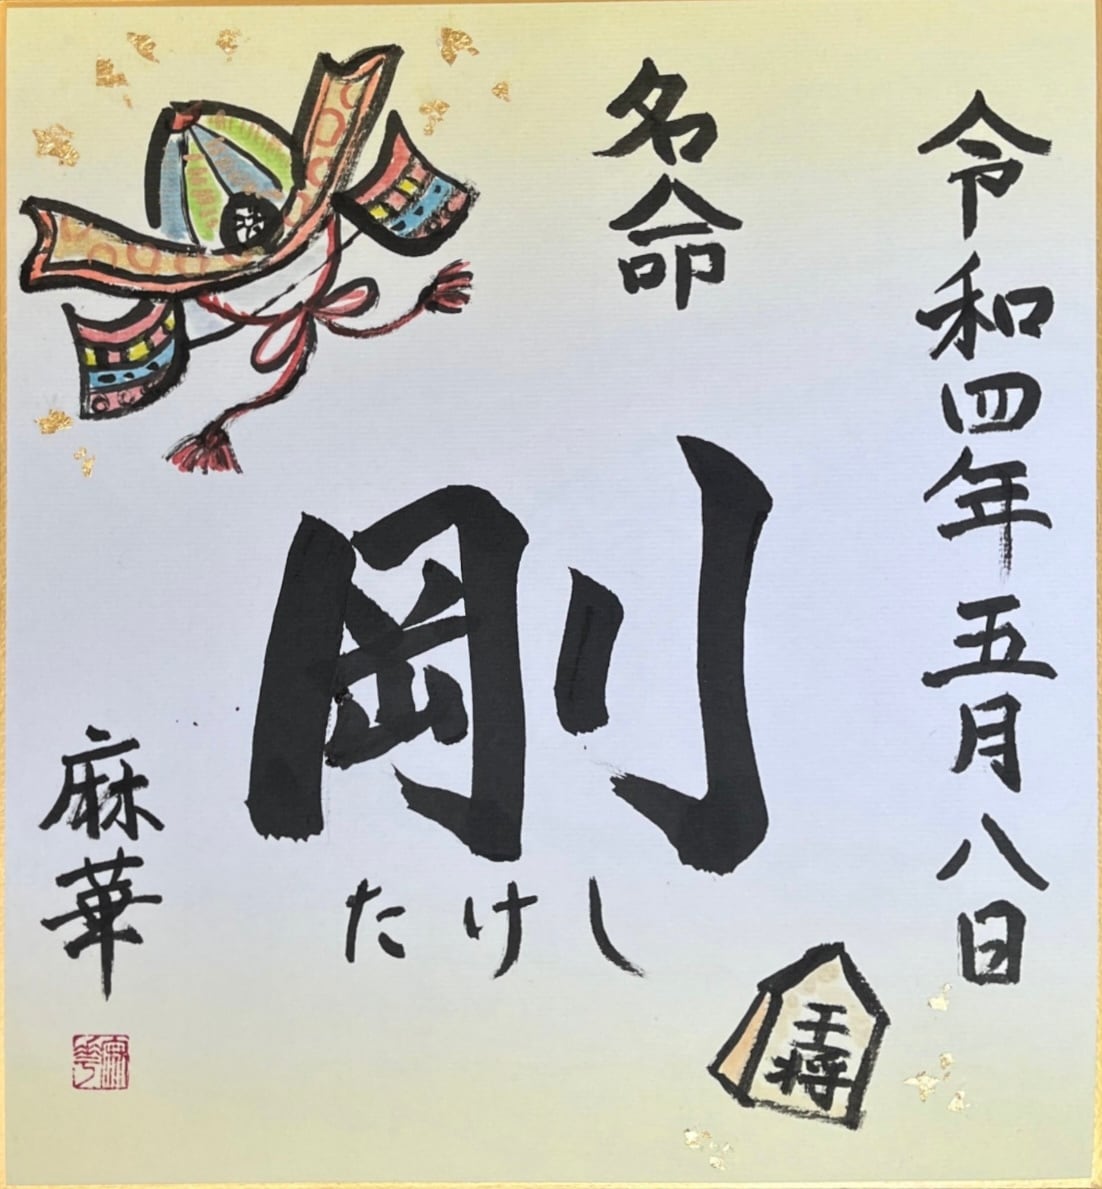 令和四年五月八日
名命
剛
たけし
王将
麻華
麻華